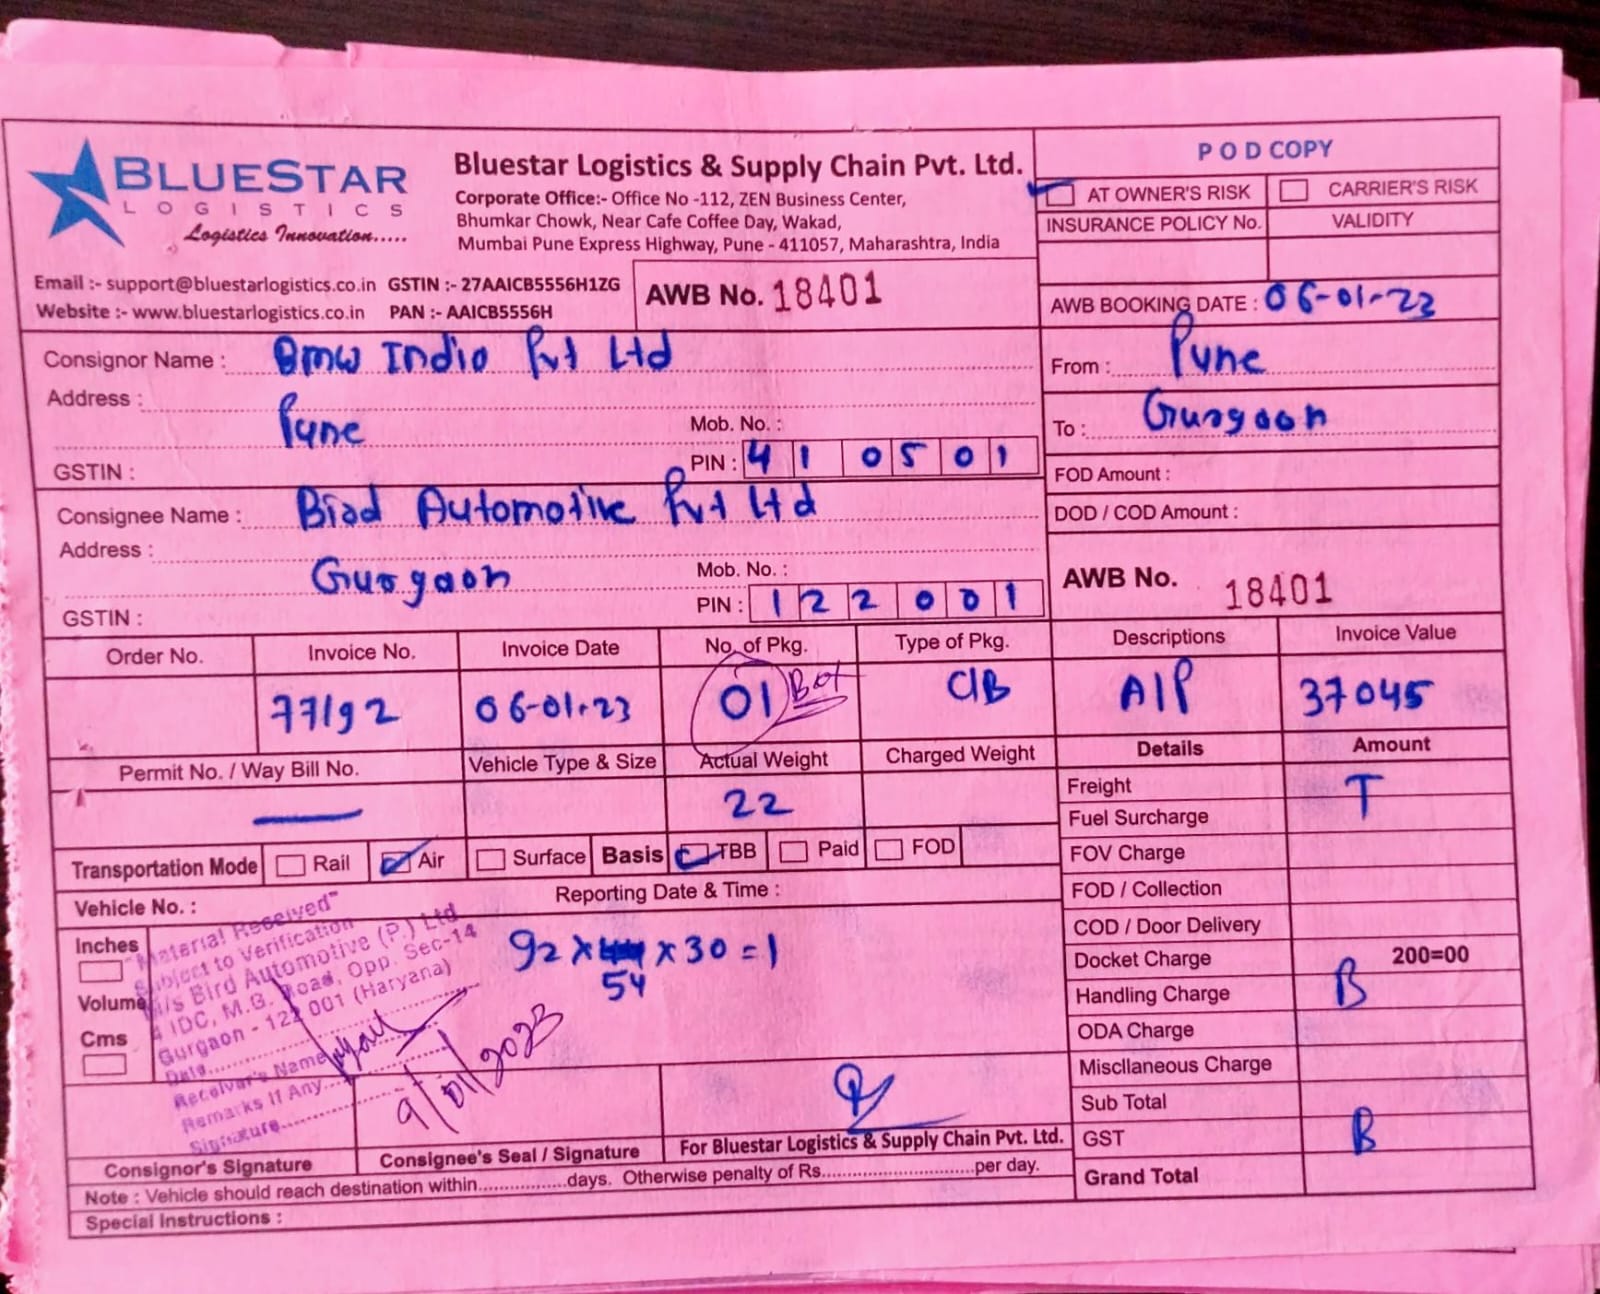 BLUESTAR
LOGISTICS
Logistics Innovation.....
Bluestar Logistics & Supply Chain Pvt. Ltd.
Corporate Office:- Office No -112, ZEN Business Center,
Bhumkar Chowk, Near Cafe Coffee Day, Wakad,
Mumbai Pune Express Highway, Pune - 411057, Maharashtra, India
Email :- support@bluestarlogistics.co.in GSTIN :- 27AAICB5556H1ZG
Website :- www.bluestarlogistics.co.in PAN :- AAICB5556H
AWB No. 18401
POD COPY
AT OWNER'S RISK CARRIER'S RISK
INSURANCE POLICY No. VALIDITY
AWB BOOKING DATE : 06-01-23
Consignor Name : Bmw India Pvt Ltd
Address : Pune
Mob. No. :
GSTIN : PIN : 410501
From : Pune
To : Gurgaon
FOD Amount :
DOD / COD Amount :
Consignee Name : Bird Automotive Pvt Ltd
Address : Gurgaon
Mob. No. :
GSTIN : PIN : 122001
AWB No. 18401
Order No. Invoice No. Invoice Date No. of Pkg. Type of Pkg. Descriptions Invoice Value
77192 06-01-23 01 Box C/B A/P 37045
Permit No. / Way Bill No. Vehicle Type & Size Actual Weight Charged Weight Details Amount
22
Transportation Mode Rail Air Surface Basis TBB Paid FOD
Vehicle No. : Reporting Date & Time :
Inches
Volume
Cms
92 x 54 x 30 = 1
"Material Received"
Subject to Verification
M/s Bird Automotive (P.) Ltd.
IDC, M.G. Road, Opp. Sec-14
Gurgaon - 122 001 (Haryana)
Date
Receiver's Name
Remarks If Any
Signature
9/01/2023
Freight T
Fuel Surcharge
FOV Charge
FOD / Collection
COD / Door Delivery
Docket Charge 200=00
Handling Charge B
ODA Charge
Miscllaneous Charge
Sub Total
GST B
Grand Total
Consignor's Signature Consignee's Seal / Signature For Bluestar Logistics & Supply Chain Pvt. Ltd.
Note : Vehicle should reach destination within................days. Otherwise penalty of Rs...........................per day.
Special Instructions :